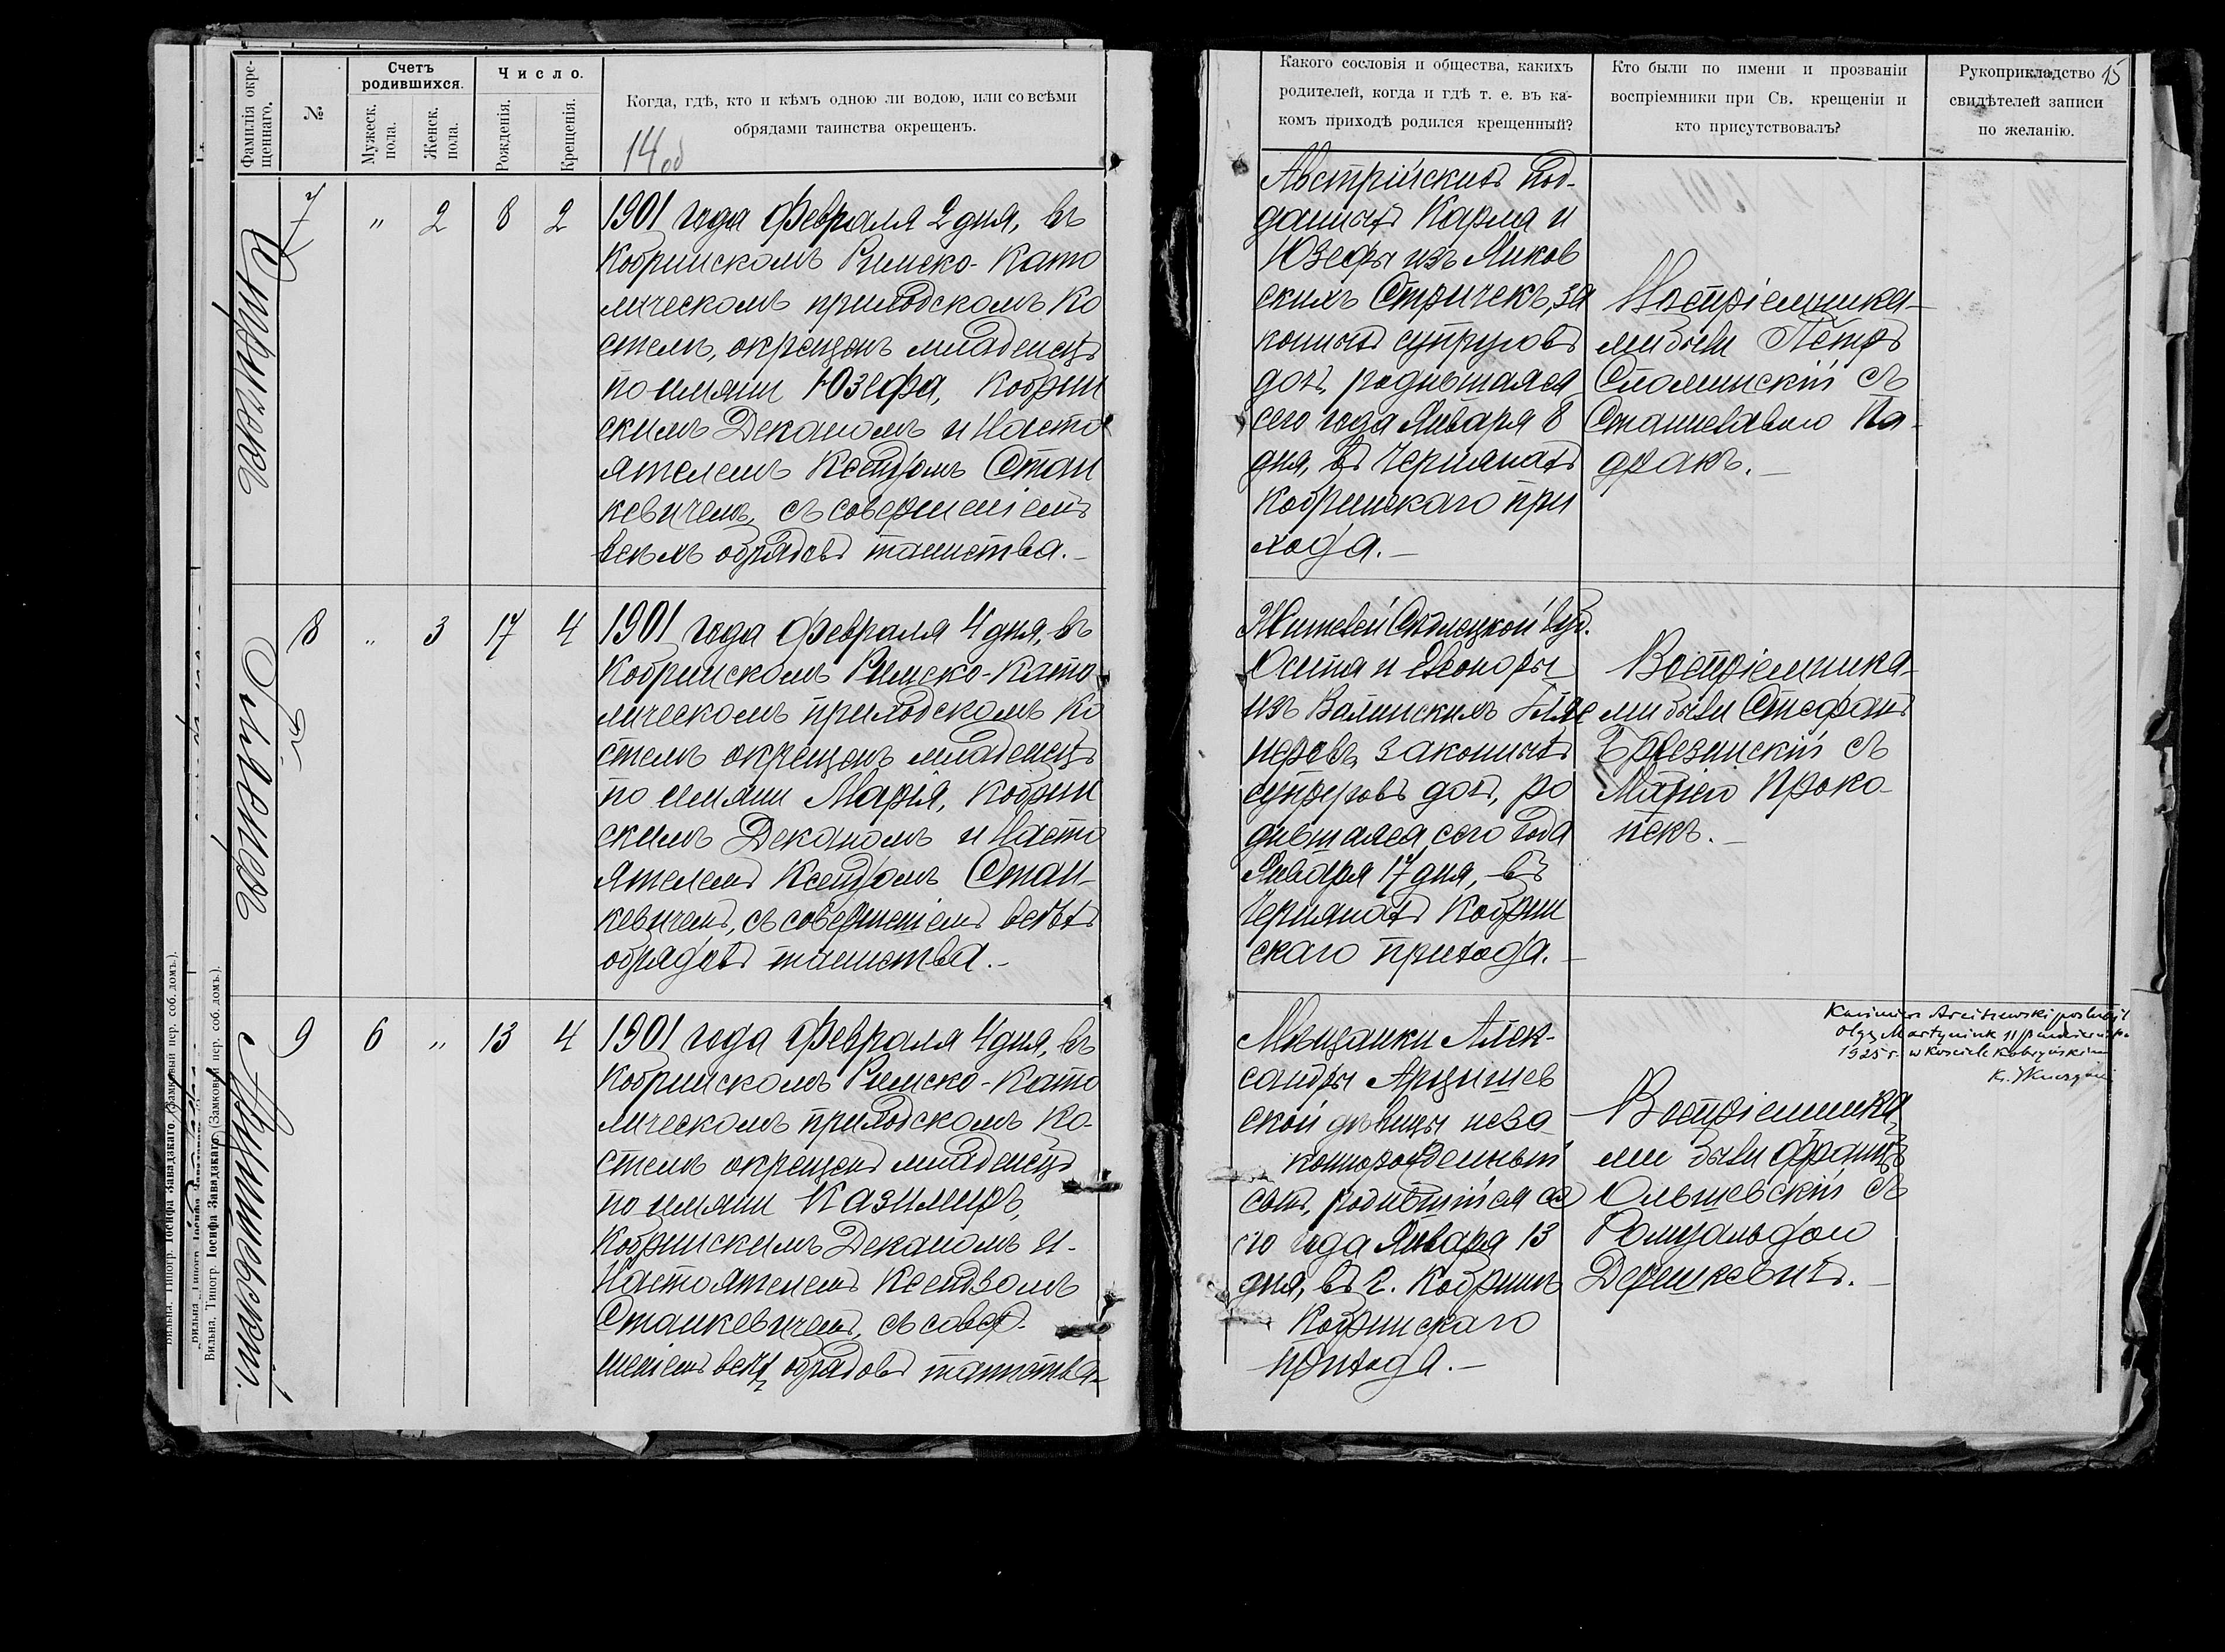 Фамилія окре-
щеннаго.
№
Счетъ
родившихся.
Мужеск.
пола.
Женск.
пола.
Число.
Рожденія.
Крещенія.
Когда, гдѣ, кто и кѣмъ одною ли водою, или со всѣми
обрядами таинства окрещенъ.
14 об
Стричекъ
7
"
2
8
2
1901 года Февраля 2 дня, въ
Кобринскомъ Римско-Като
лическомъ приходскомъ Ко
стелѣ, окрещенъ младенецъ
по имяни Юзефа, Кобрин
скимъ Деканомъ и Насто
ятелемъ Ксендзомъ Стан
кевичемъ, съ совершеніемъ
всѣхъ обрядовъ таинства.-
8
"
3
17
4
1901 года Февраля 4 дня, въ
Кобринскомъ Римско-Като-
лическомъ приходскомъ Ко
стелѣ окрещенъ младенецъ
по имяни Марія, Кобрин
скимъ Деканомъ и Насто
ятелемъ Ксендзомъ Стан-
кевичемъ, съ совершеніемъ всѣхъ
обрядовъ таинства.-
Арцишевскій.
9
6
"
13
4
1901 года Февраля 4 дня, въ
Кобринскомъ Римско-Като
лическомъ приходскомъ Ко-
стелѣ окрещенъ младенецъ
по имяни Казимиръ,
Кобринскимъ Деканомъ и-
Настоятелемъ Ксендзомъ
Станкевичемъ, съ совер-
шеніемъ всѣхъ обрядовъ таинства-
Вильна. Типогр. Іосифа Завадзкаго. (Замковый пер. соб. домъ.).
Какого сословія и общества, какихъ
родителей, когда и гдѣ т. е. въ ка-
комъ приходѣ родился крещенный?
Кто были по имени и прозванію
воспріемники при Св. крещеніи и
кто присутствовалъ?
Рукоприкладство
свидѣтелей записи
по желанію.
15
Австрійскихъ под-
данныхъ Карла и
Юзефы изъ Янков
скихъ Стричекъ, за
конныхъ супруговъ
дочь, родившаяся
сего года Января 8
дня, въ Чернянахъ
Кобринскаго при
хода.-
Воспріемника-
ми были Петръ
съ
Станиславою
Жителей Сѣдлецкой губ.
Осипа и Элеоноры
изъ Валинскихъ
законныхъ
супруговъ дочь, ро
дившаяся сего года
Января 17 дня, въ
Чернянахъ Кобрин
скаго прихода.-
Воспріемника-
ми были Стефанъ
Брезинскій съ
Маріею Проко-
пекъ.-
Мѣщанки Алек-
сандры Арцишев
ской дѣвицы неза
коннорожденный
сынъ, родившійся се
го года Января 13
дня, въ г. Кобринѣ
Кобринскаго
прихода.-
Воспріемника
ми были Францъ
Ольшевскій съ
Ромуальдою
Дерешкевичъ.-
Kazimierz Arciszewski poślubił
Olgę Martyniuk 11 października
1925 r. w Kościele Kobryńskim